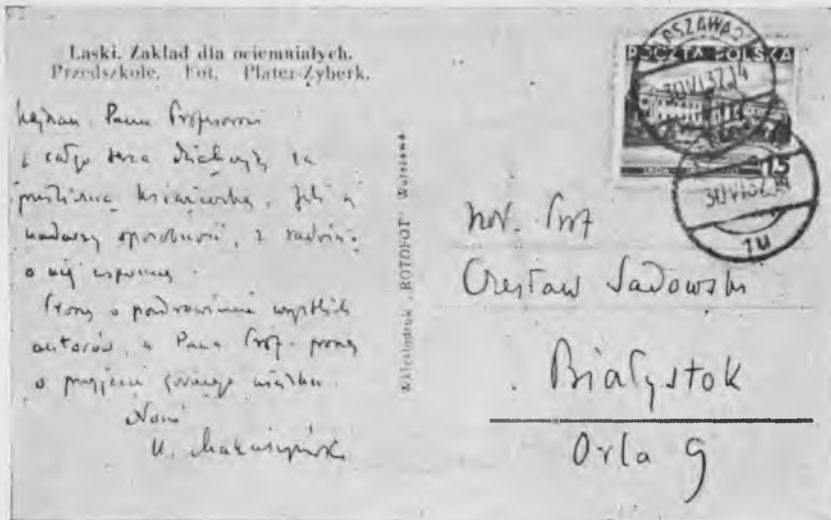 Laski. Zakład dla ociemniałych.
Przedszkole. Fot. Plater-Zyberk.
Pana Profesorowi
z całego serca dziękuję za
prześliczną książeczkę. Jeśli się
nadarzy sposobność, z radością
o niej wspomnę.
Proszę o pozdrowienie wszystkich
autorów, a Pana Prof. proszę
o przyjęcie
K. Makuszyński
Wklęsłodruk „ROTOFOT" Warszawa
POCZTA POLSKA
15
30 VI 37 14
30 VI 37
Prof
Czesław Sadowski
Białystok
Orla 9